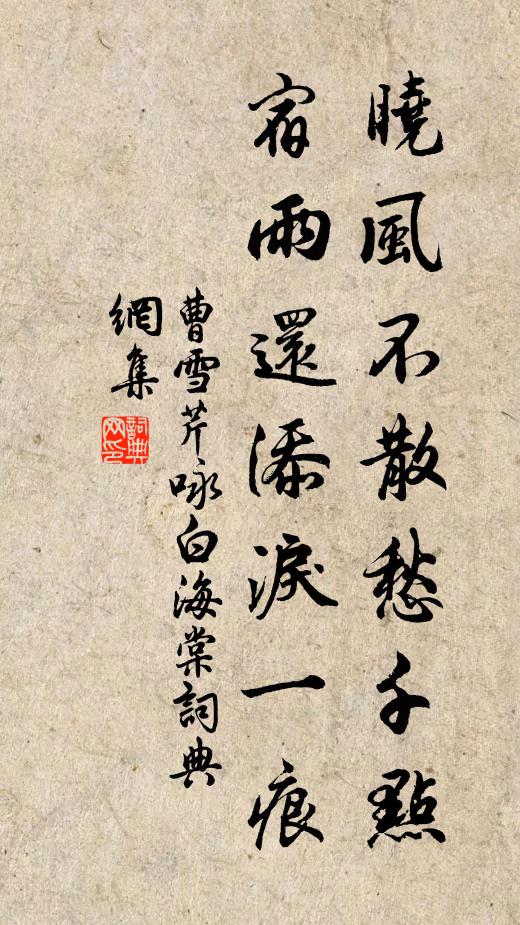 曉風不散愁千點
宿雨還添淚一痕
曹雪芹咏白海棠詞典
網集
詞典網印